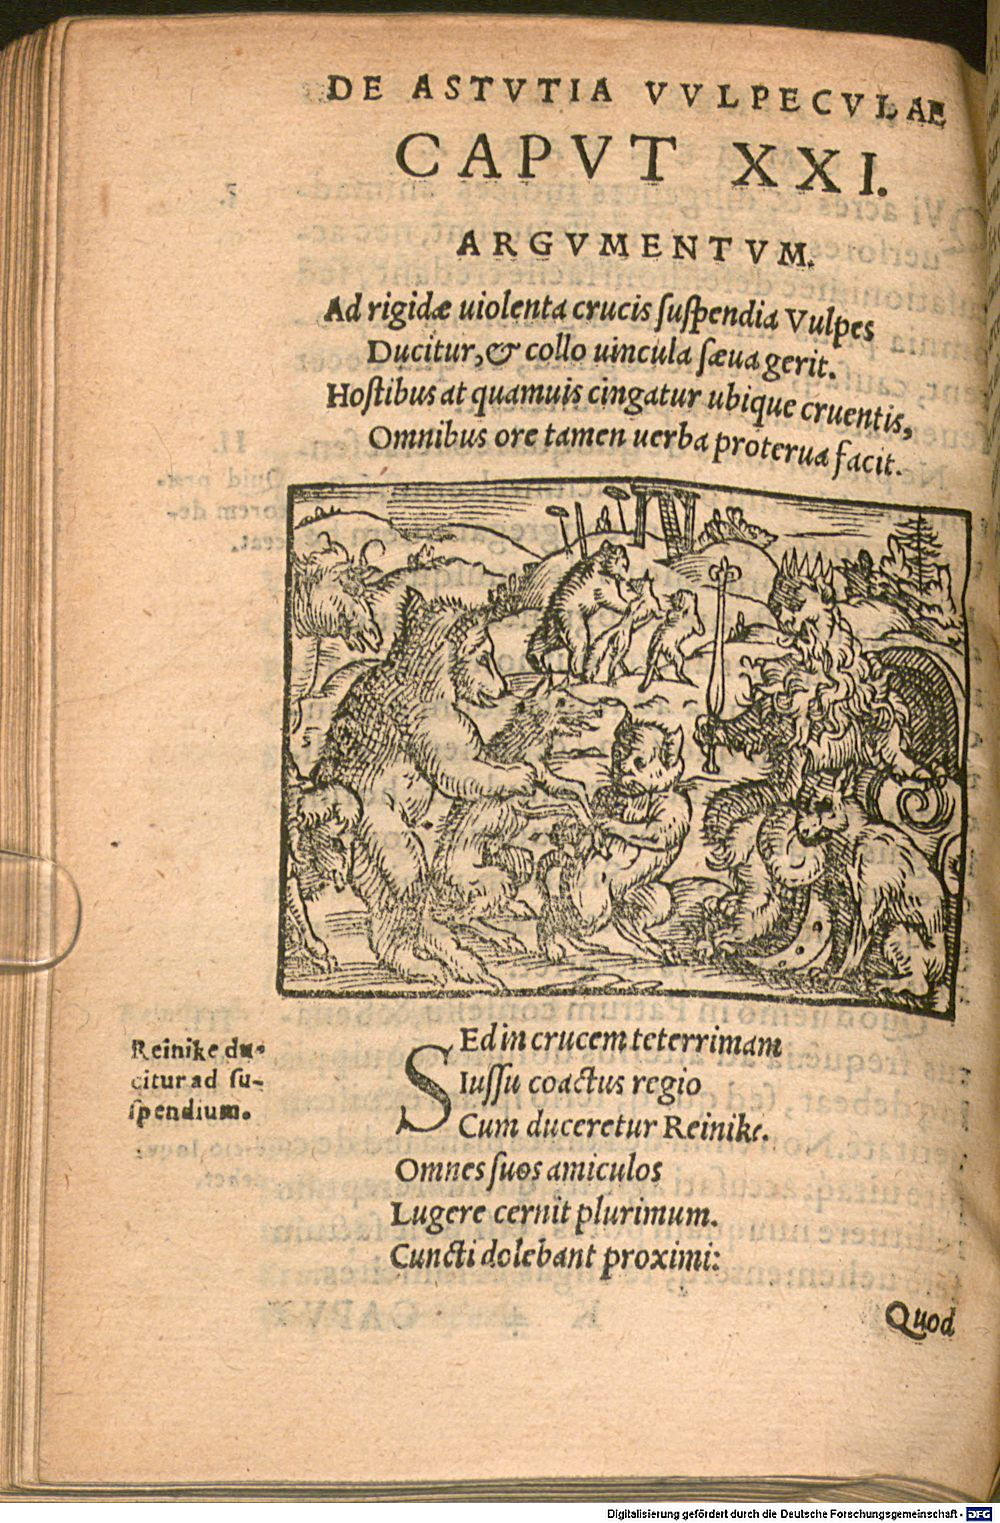 DE ASTVTIA VVLPECVLAE
CAPVT XXI.
ARGVMENTVM.
Ad rigidæ uiolenta crucis ſuſpendia Vulpes
Ducitur, & collo uincula ſæua gerit.
Hoſtibus at quamuis cingatur ubique cruentis,
Omnibus ore tamen uerba proterua facit.
Reinike du-
citur ad ſu-
ſpendium.
SEd in crucem teterrimam
Iuſſu coactus regio
Cum duceretur Reinike.
Omnes ſuos amiculos
Lugere cernit plurimum.
Cuncti dolebant proximi:
Quod
Digitalisierung gefördert durch die Deutsche Forschungsgemeinschaft - DFG